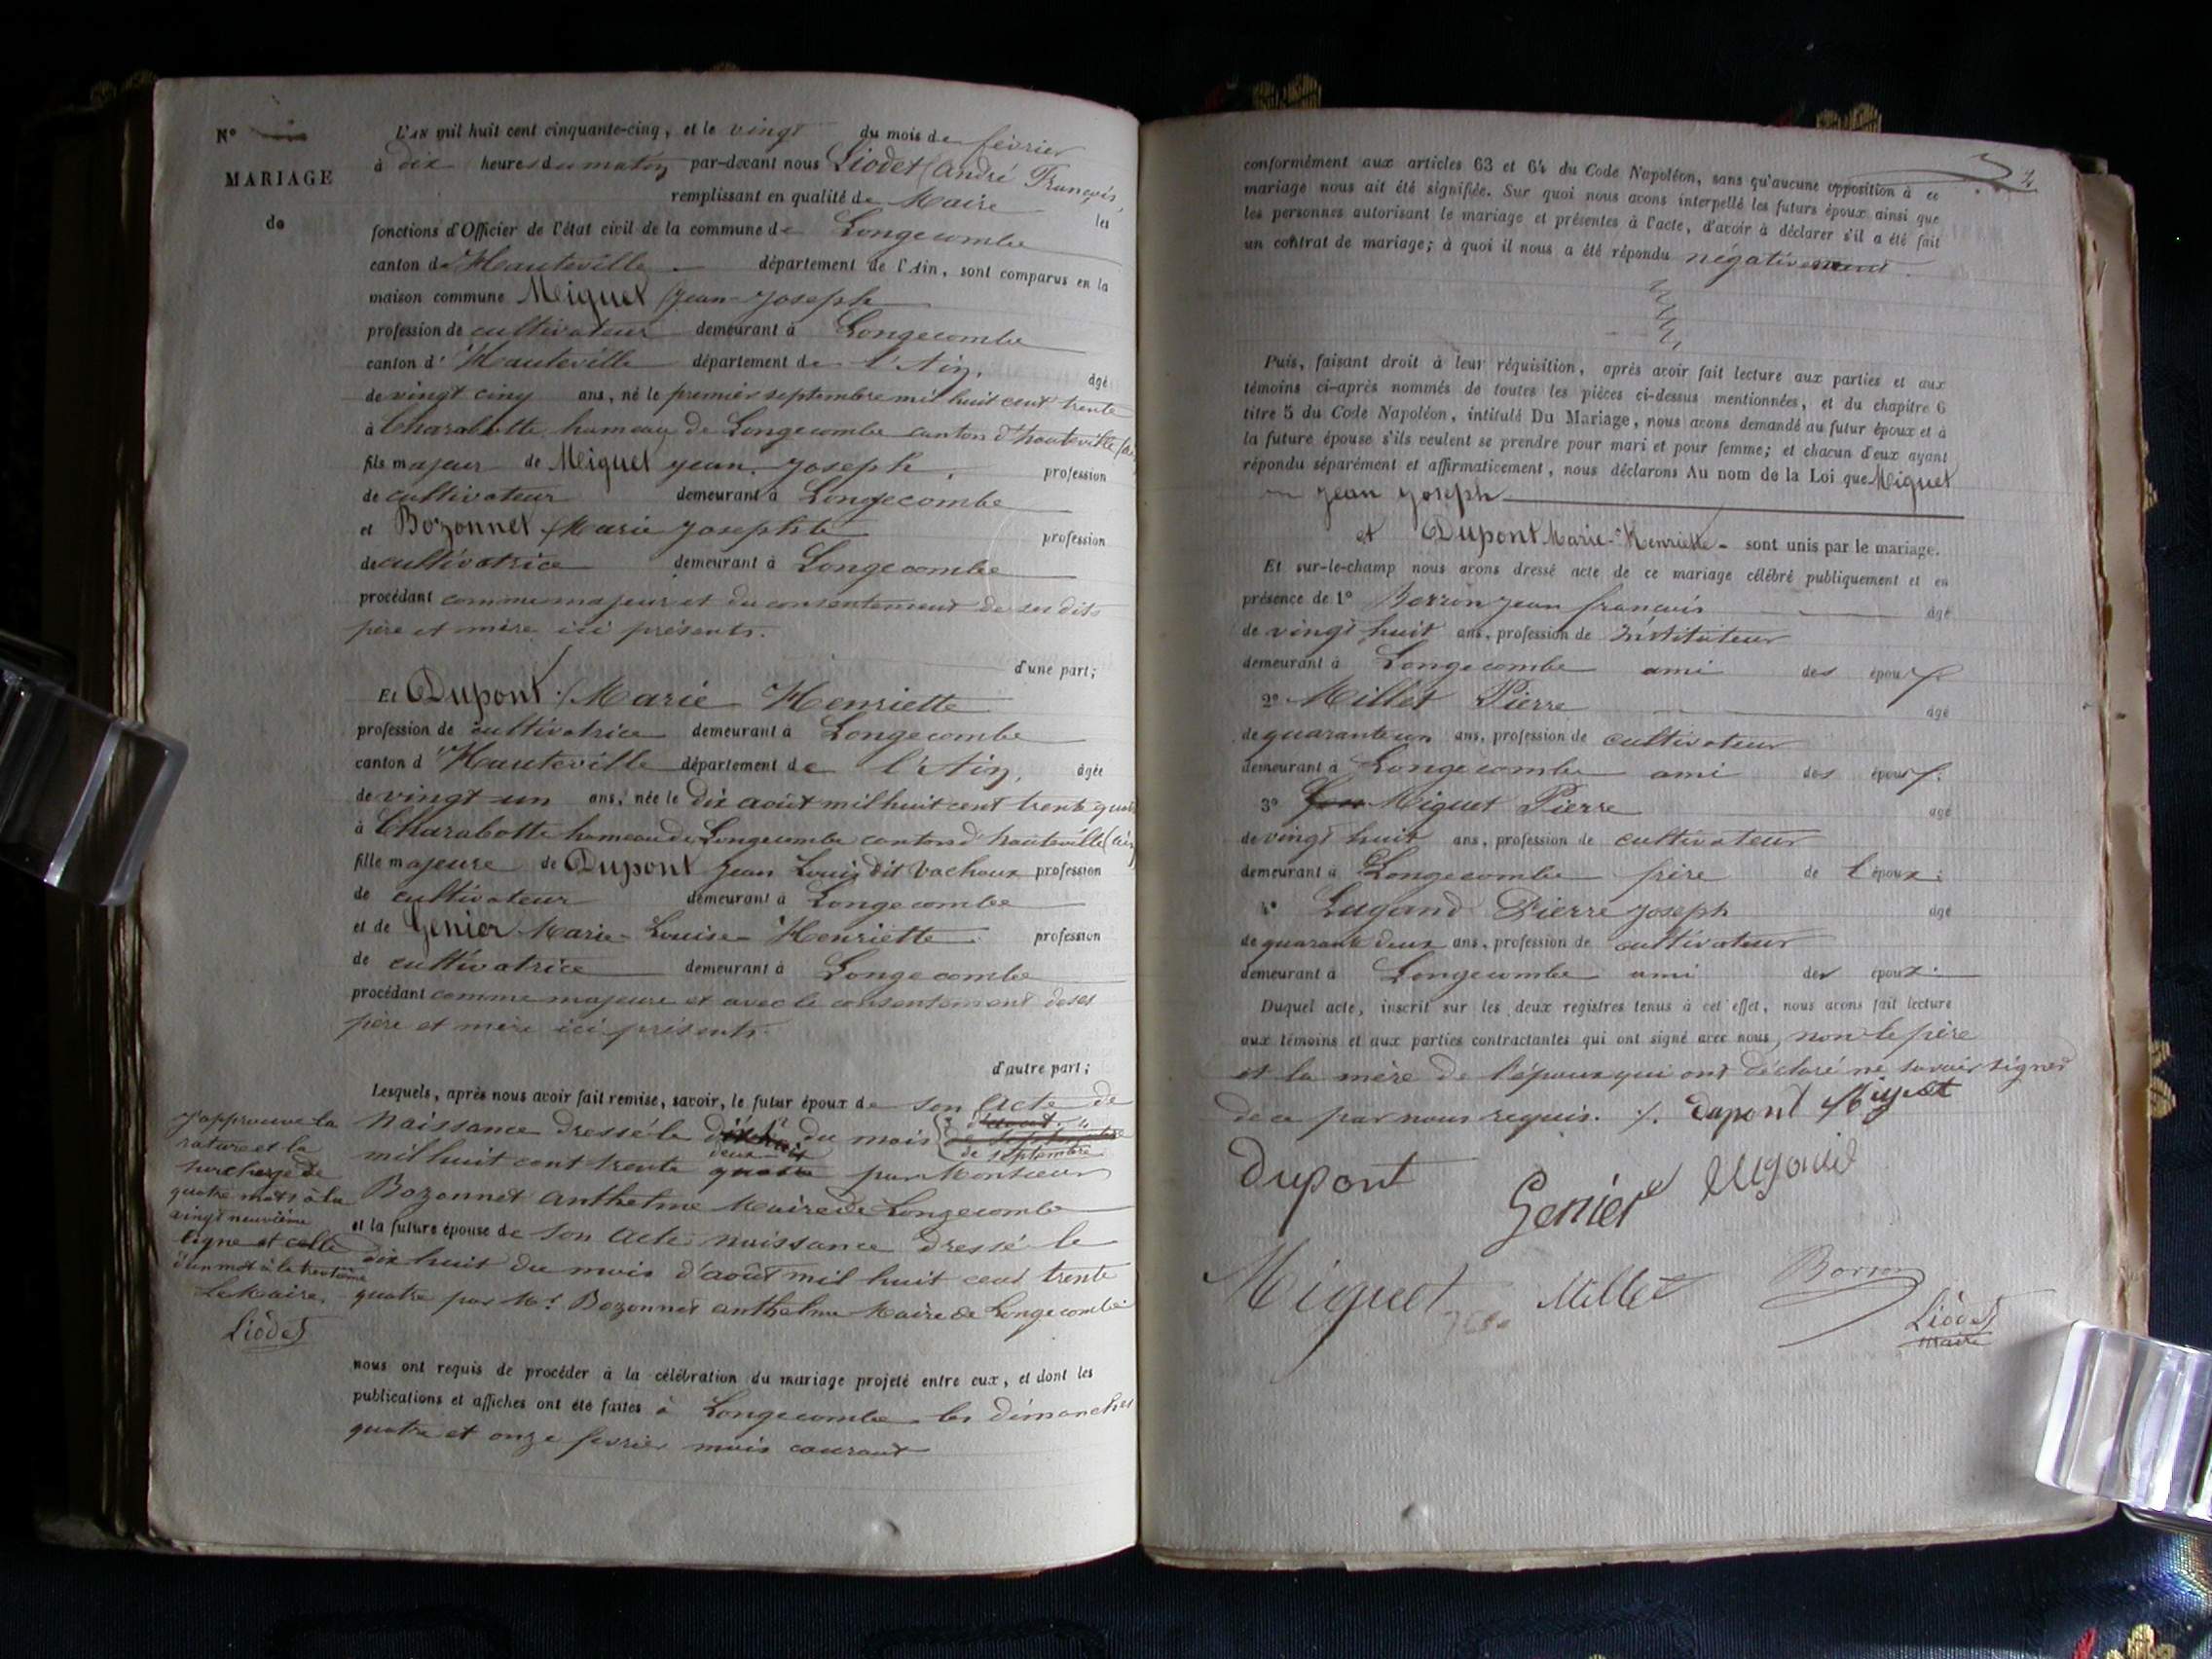 N°
MARIAGE
de
L'AN mil huit cent cinquante-cinq, et le vingt du mois de février
à dix heures du matin par-devant nous Liodet (André François,
remplissant en qualité de Maire les
fonctions d'Officier de l'état civil de la commune de Longecombe
canton d'Hauteville département de l'Ain, sont comparus en la
maison commune Miguet Jean-Joseph
profession de cultivateur demeurant à Longecombe
canton d'Hauteville département de l'Ain, âgé
de vingt cinq ans, né le premier septembre mil huit cent trente
à Charabotte hameau de Longecombe canton d'hauteville (ain
fils majeur de Miguet jean Joseph, profession
de cultivateur demeurant à Longecombe
et Bozonnet Marie Josephte profession
de cultivatrice demeurant à Longecombe
procédant comme majeur et du consentement de ses dits
père et mère ici présents.
d'une part;
Et Dupont Marie Henriette
profession de cultivatrice demeurant à Longecombe
canton d'Hauteville département de l'Ain, âgée
de vingt un ans, née le dix août mil huit cent trente quatre
à Charabotte hameau de Longecombe canton d'hauteville (ain
fille majeure de Dupont Jean Louis dit Vachoux profession
de cultivateur demeurant à Longecombe
et de Genier Marie-Louise-Henriette profession
de cultivatrice demeurant à Longecombe
procédant comme majeure et avec le consentement de ses
père et mère ici présents.
d'autre part;
Lesquels, après nous avoir fait remise, savoir, le futur époux de son acte de
Naissance dressé le du mois
de septembre
mil huit cent trente par Monsieur
Bozonnet Anthelme Maire de Longecombe
et la future épouse de son acte naissance dressé le
dix huit du mois d'août mil huit cent trente
quatre par Mr Bozonnet anthelme Maire de Longecombe
J'approuve la
rature et la
surcharge de
quatre mots à la
vingt neuvième
ligne et celle
d'un mot à la trentième
Le Maire,
Liodet
nous ont requis de procéder à la célébration du mariage projeté entre eux, et dont les
publications et affiches ont été faites à Longecombe les dimanches
quatre et onze fevrier mois courant
conformément aux articles 63 et 64 du Code Napoléon, sans qu'aucune opposition à ce
mariage nous ait été signifiée. Sur quoi nous avons interpellé les futurs époux ainsi que
les personnes autorisant le mariage et présentes à l'acte, d'avoir à déclarer s'il a été fait
un contrat de mariage; à quoi il nous a été répondu négativement.
Puis, faisant droit à leur réquisition, après avoir fait lecture aux parties et aux
témoins ci-après nommés de toutes les pièces ci-dessus mentionnées, et du chapitre 6
titre 5 du Code Napoléon, intitulé Du Mariage, nous avons demandé au futur époux et à
la future épouse s'ils veulent se prendre pour mari et pour femme; et chacun d'eux ayant
répondu séparément et affirmativement, nous déclarons Au nom de la Loi que Miguet
jean joseph
et Dupont Marie-Henriette sont unis par le mariage.
Et sur-le-champ nous avons dressé acte de ce mariage célébré publiquement et en
présence de 1° Borron jean françois âgé
de vingt huit ans, profession de Instituteur
demeurant à Longecombe ami des époux.
2° Millet Pierre âgé
de quarante un ans, profession de cultivateur
demeurant à Longecombe ami des époux.
3° Miguet Pierre âgé
de vingt huit ans, profession de cultivateur
demeurant à Longecombe frère de l'époux.
4° Lugand Pierre joseph âgé
de quarante deux ans, profession de cultivateur
demeurant à Longecombe ami des époux.
Duquel acte, inscrit sur les deux registres tenus à cet effet, nous avons fait lecture
aux témoins et aux parties contractantes qui ont signé avec nous, non le père
et la mère de l'époux qui ont déclaré ne savoir signer
de ce par nous requis. Dupont Miguet
Dupont
Genier Lugand
Miguet Millet Borron
Liodet
maire